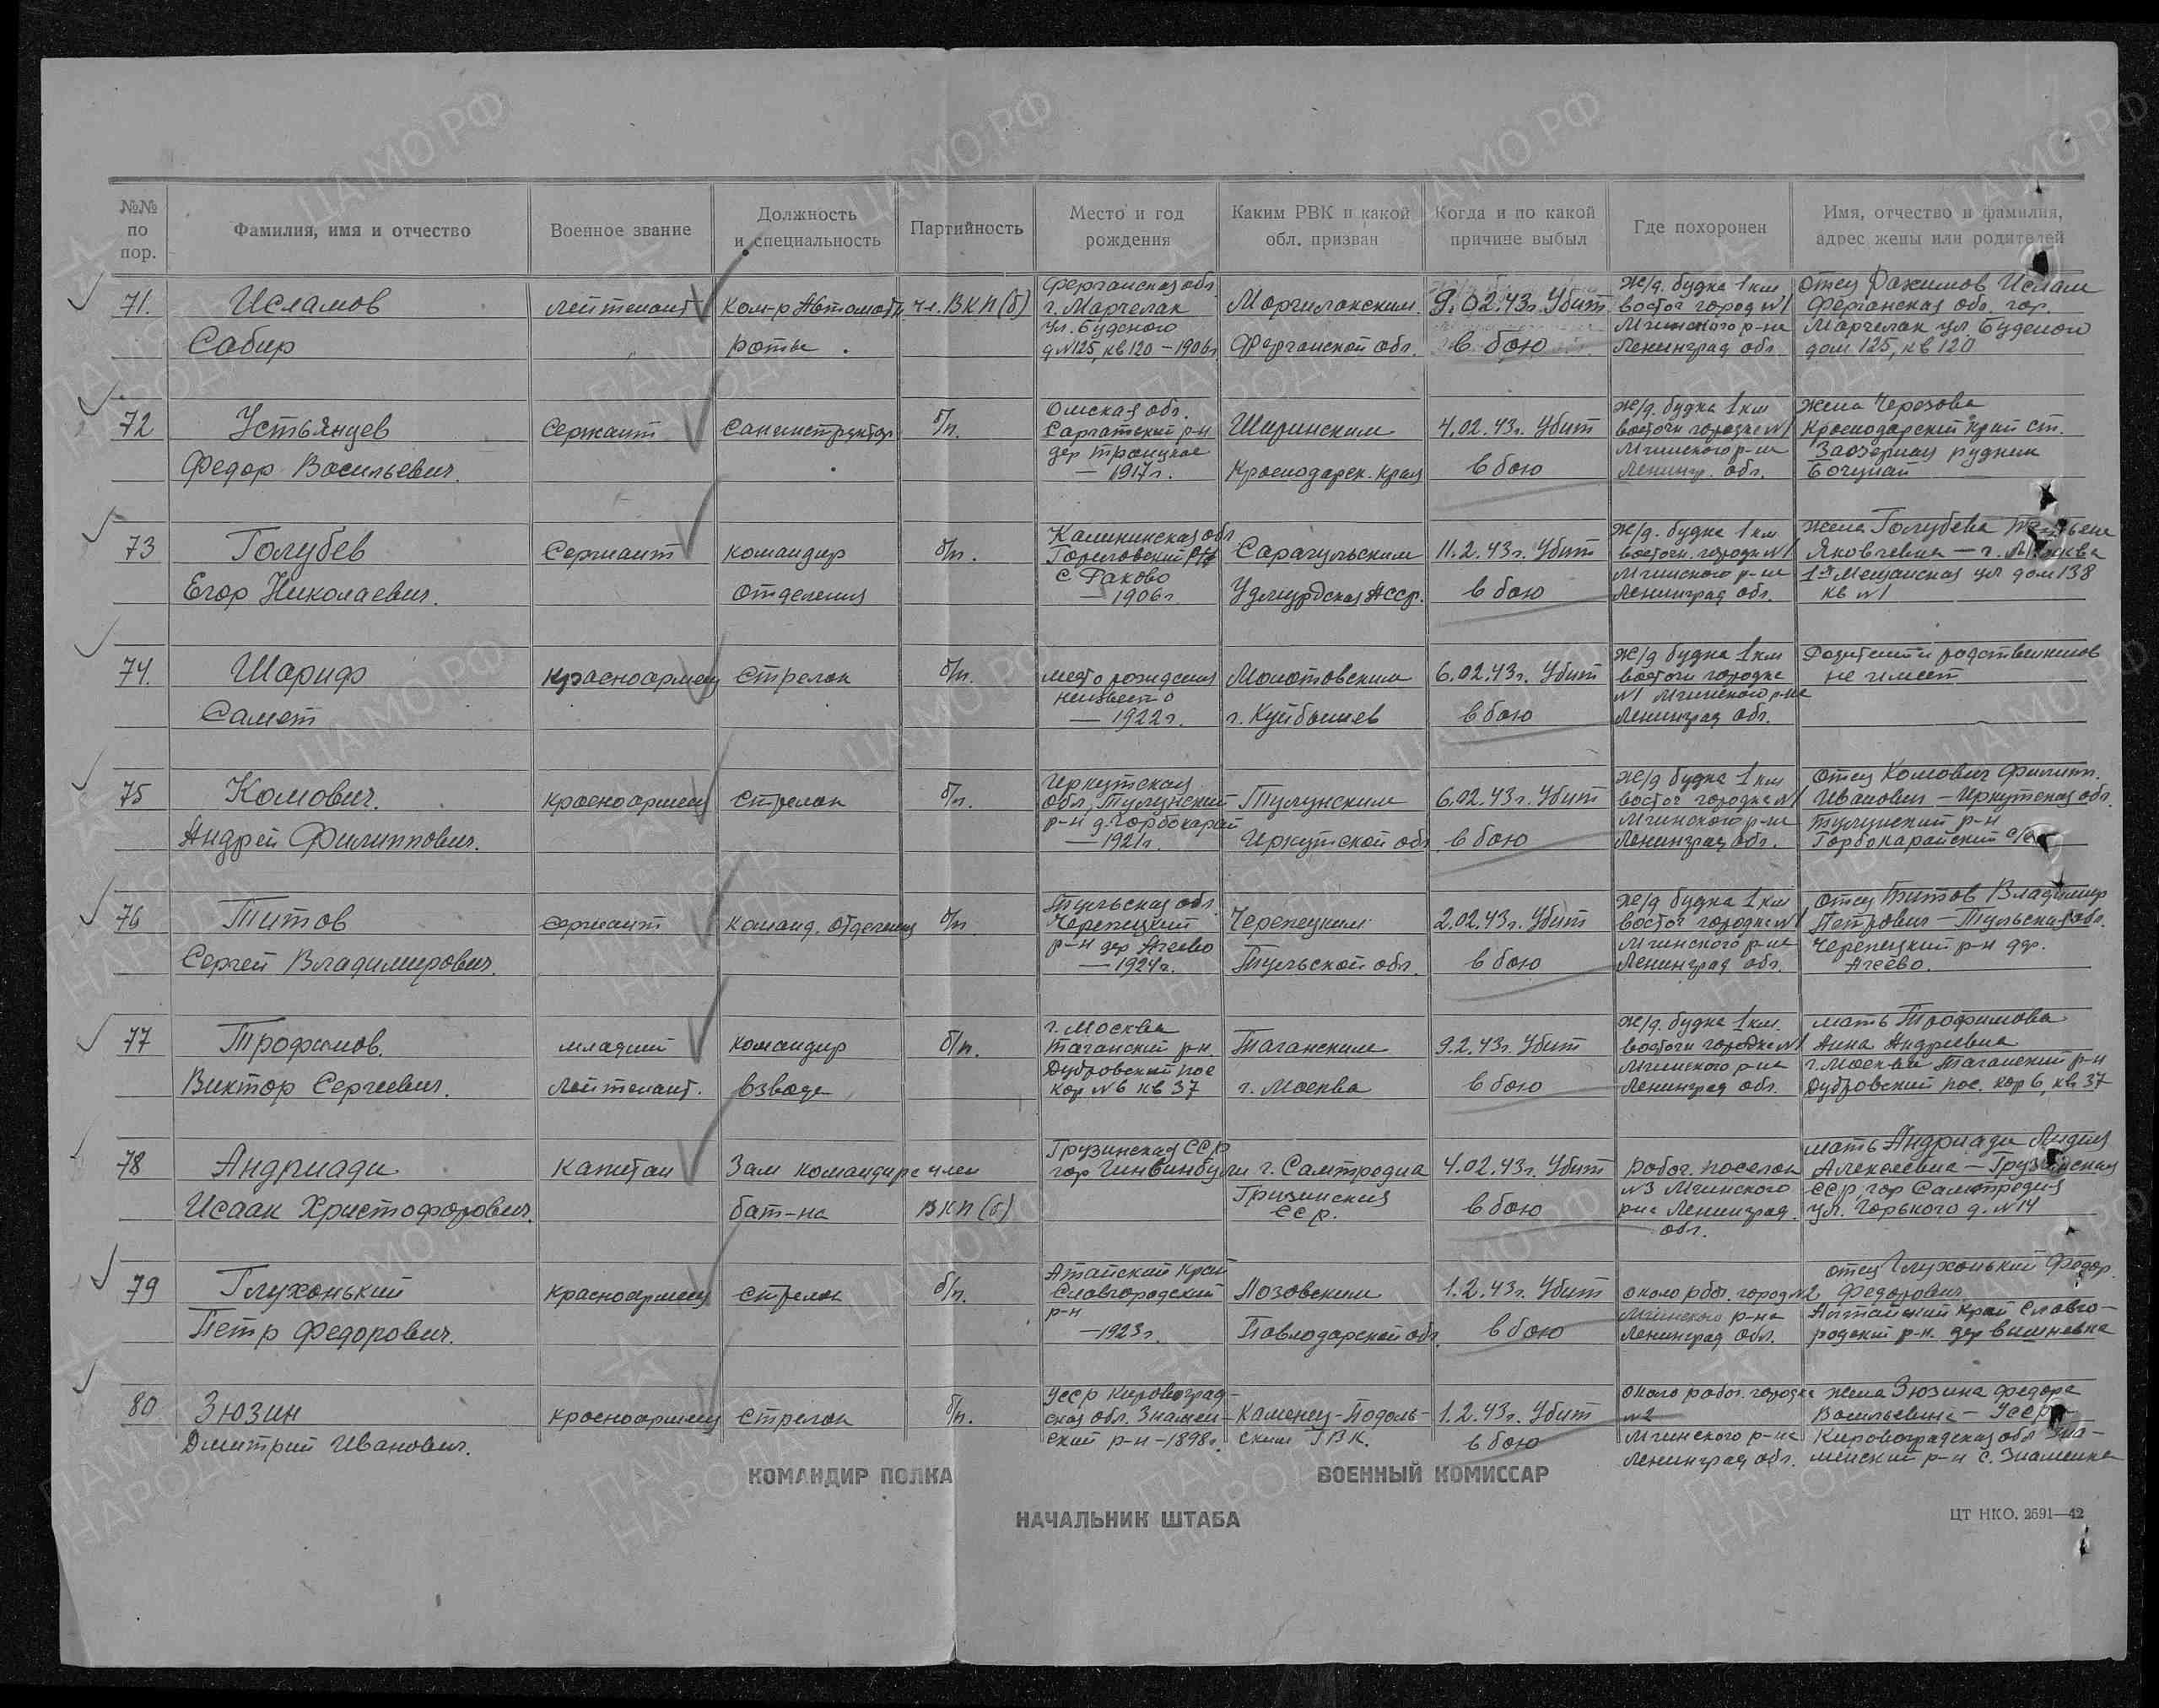 №№ по пор.
Фамилия, имя и отчество
Военное звание
Должность и специальность
Партийность
Место и год рождения
Каким РВК и какой обл. призван
Когда и по какой причине выбыл
Где похоронен
Имя, отчество и фамилия, адрес жены или родителей
71. Исламов
Сабир
лейтенант
Ком-р Автоматн
роты
чл. ВКП(б)
Ферганская обл
г. Маргелак
ул. Буденого
д №125, кв 120 – 1906г
Маргилакским
Ферганской обл.
9.02.43г. Убит
в бою
ж/д. будка 1 км
восточ город №1
Мгинского р-на
Ленинград обл
отец Рахимов Ислам
Ферганская обл. гор.
Маргелак ул Буденого
дом 125, кв 120
72 Устьянцев
Федор Васильевич.
Сержант
Санинструктор
б/п.
Омская обл.
Саргатский р-н
дер Троицкое
— 1917г.
Ширинским
Краснодарск. края
4.02.43г. Убит
в бою
ж/д. будка 1 км
восточн городка №1
Мгинского р-на
Ленингр. обл.
жена Черезова
Краснодарский край ст.
Заозерная рудник
73 Голубев
Егор Николаевич.
Сержант
командир
отделения
б/п.
Калининская обл
с. Раково
— 1906г.
Сарапульским
Удмурдская Асср.
11.2.43г. Убит
в бою
ж/д. будка 1 км
восточн. городк №1
Мгинского р-на
Ленинград обл.
жена Голубева Татьяна
Яковлевна — г. Москва
1я Мещанская ул дом 138
кв №1
74. Шариф
Самет
красноармеец
Стрелок
б/п.
место рождения
неизвестно
— 1922г.
Молотовским
г. Куйбышев
6.02.43г. Убит
в бою
ж/д будка 1 км
восточн городка
№1 Мгинского р-на
Ленинград обл.
Родителей и родственников
не имеет
75 Комович.
Андрей Филиппович.
красноармеец
стрелок
б/п.
Иркутская
обл, Тулунский
р-н д. Горбокарай
— 1921г.
Тулунским
Иркутской обл
6.02.43г. Убит
в бою
ж/д будка 1 км
восточ городка №1
Мгинского р-на
Ленинград обл.
отец Комович Филипп.
Иванович – Иркутская обл.
Тулунский р-н
Горбокарайский с/с
76 Титов
Сергей Владимирович.
сержант
команд. отделения
б/п.
Тульская обл.
Черепецкий
р-н дер Агеево
— 1924г.
Черепецким
Тульской обл.
2.02.43г. Убит
в бою
ж/д будка 1 км
восточ городка №1
Мгинского р-на
Ленинград обл.
отец Титов Владимир
Петрович – Тульская обл.
Черепецкий р-н дер.
Агеево.
77 Трофимов.
Виктор Сергеевич.
младший
лейтенант.
командир
взвода
б/п.
г. Москва
Таганский р-н.
Дубровский пос
кор №6 кв 37
Таганским
г. Москва
9.2.43г. Убит
в бою
ж/д. будка 1 км.
восточн городка №1
Мгинского р-на
Ленинград обл.
мать Трофимова
Анна Андреевна
г. Москва Таганский р-н
Дубровский пос. кор 6, кв 37
78 Андриади
Исаак Христофорович.
Капитан
Зам командира
бат-на
член
ВКП(б)
Грузинская ССР
гор
г. Самтредиа
Грузинския
сср.
4.02.43г. Убит
в бою
рабоч. поселок
№3 Мгинского
р-на Ленинград.
обл.
мать Андриади Лидия
Алексеевна – Грузинская
ССР, гор Самтредия
ул. Горького д. №14
79 Глухонький
Петр Федорович.
красноармеец
стрелок
б/п.
Алтайский край
Славгородский
р-н
—1923г.
Лозовским
Павлодарской обл.
1.2.43г. Убит
в бою
около рабоч. город №2
Мгинского р-на
Ленинград обл.
отец Глухонький Федор.
Федорович
Алтайский край Славго-
родский р-н. дер Вишневка
80 Зюзин
Дмитрий Иванович.
красноармеец
стрелок
б/п.
Усср Кировоград-
ская обл. Знамен-
ский р-н – 1898г.
Каменец-Подоль-
ским ГВК.
1.2.43г. Убит
в бою
около рабоч. городка
№2
Мгинского р-на
Ленинград обл.
жена Зюзина Федора
Васильевна – Усср
Кировоградская обл Зна-
менский р-н с. Знаменка
КОМАНДИР ПОЛКА
ВОЕННЫЙ КОМИССАР
НАЧАЛЬНИК ШТАБА
ЦТ НКО. 2591—42